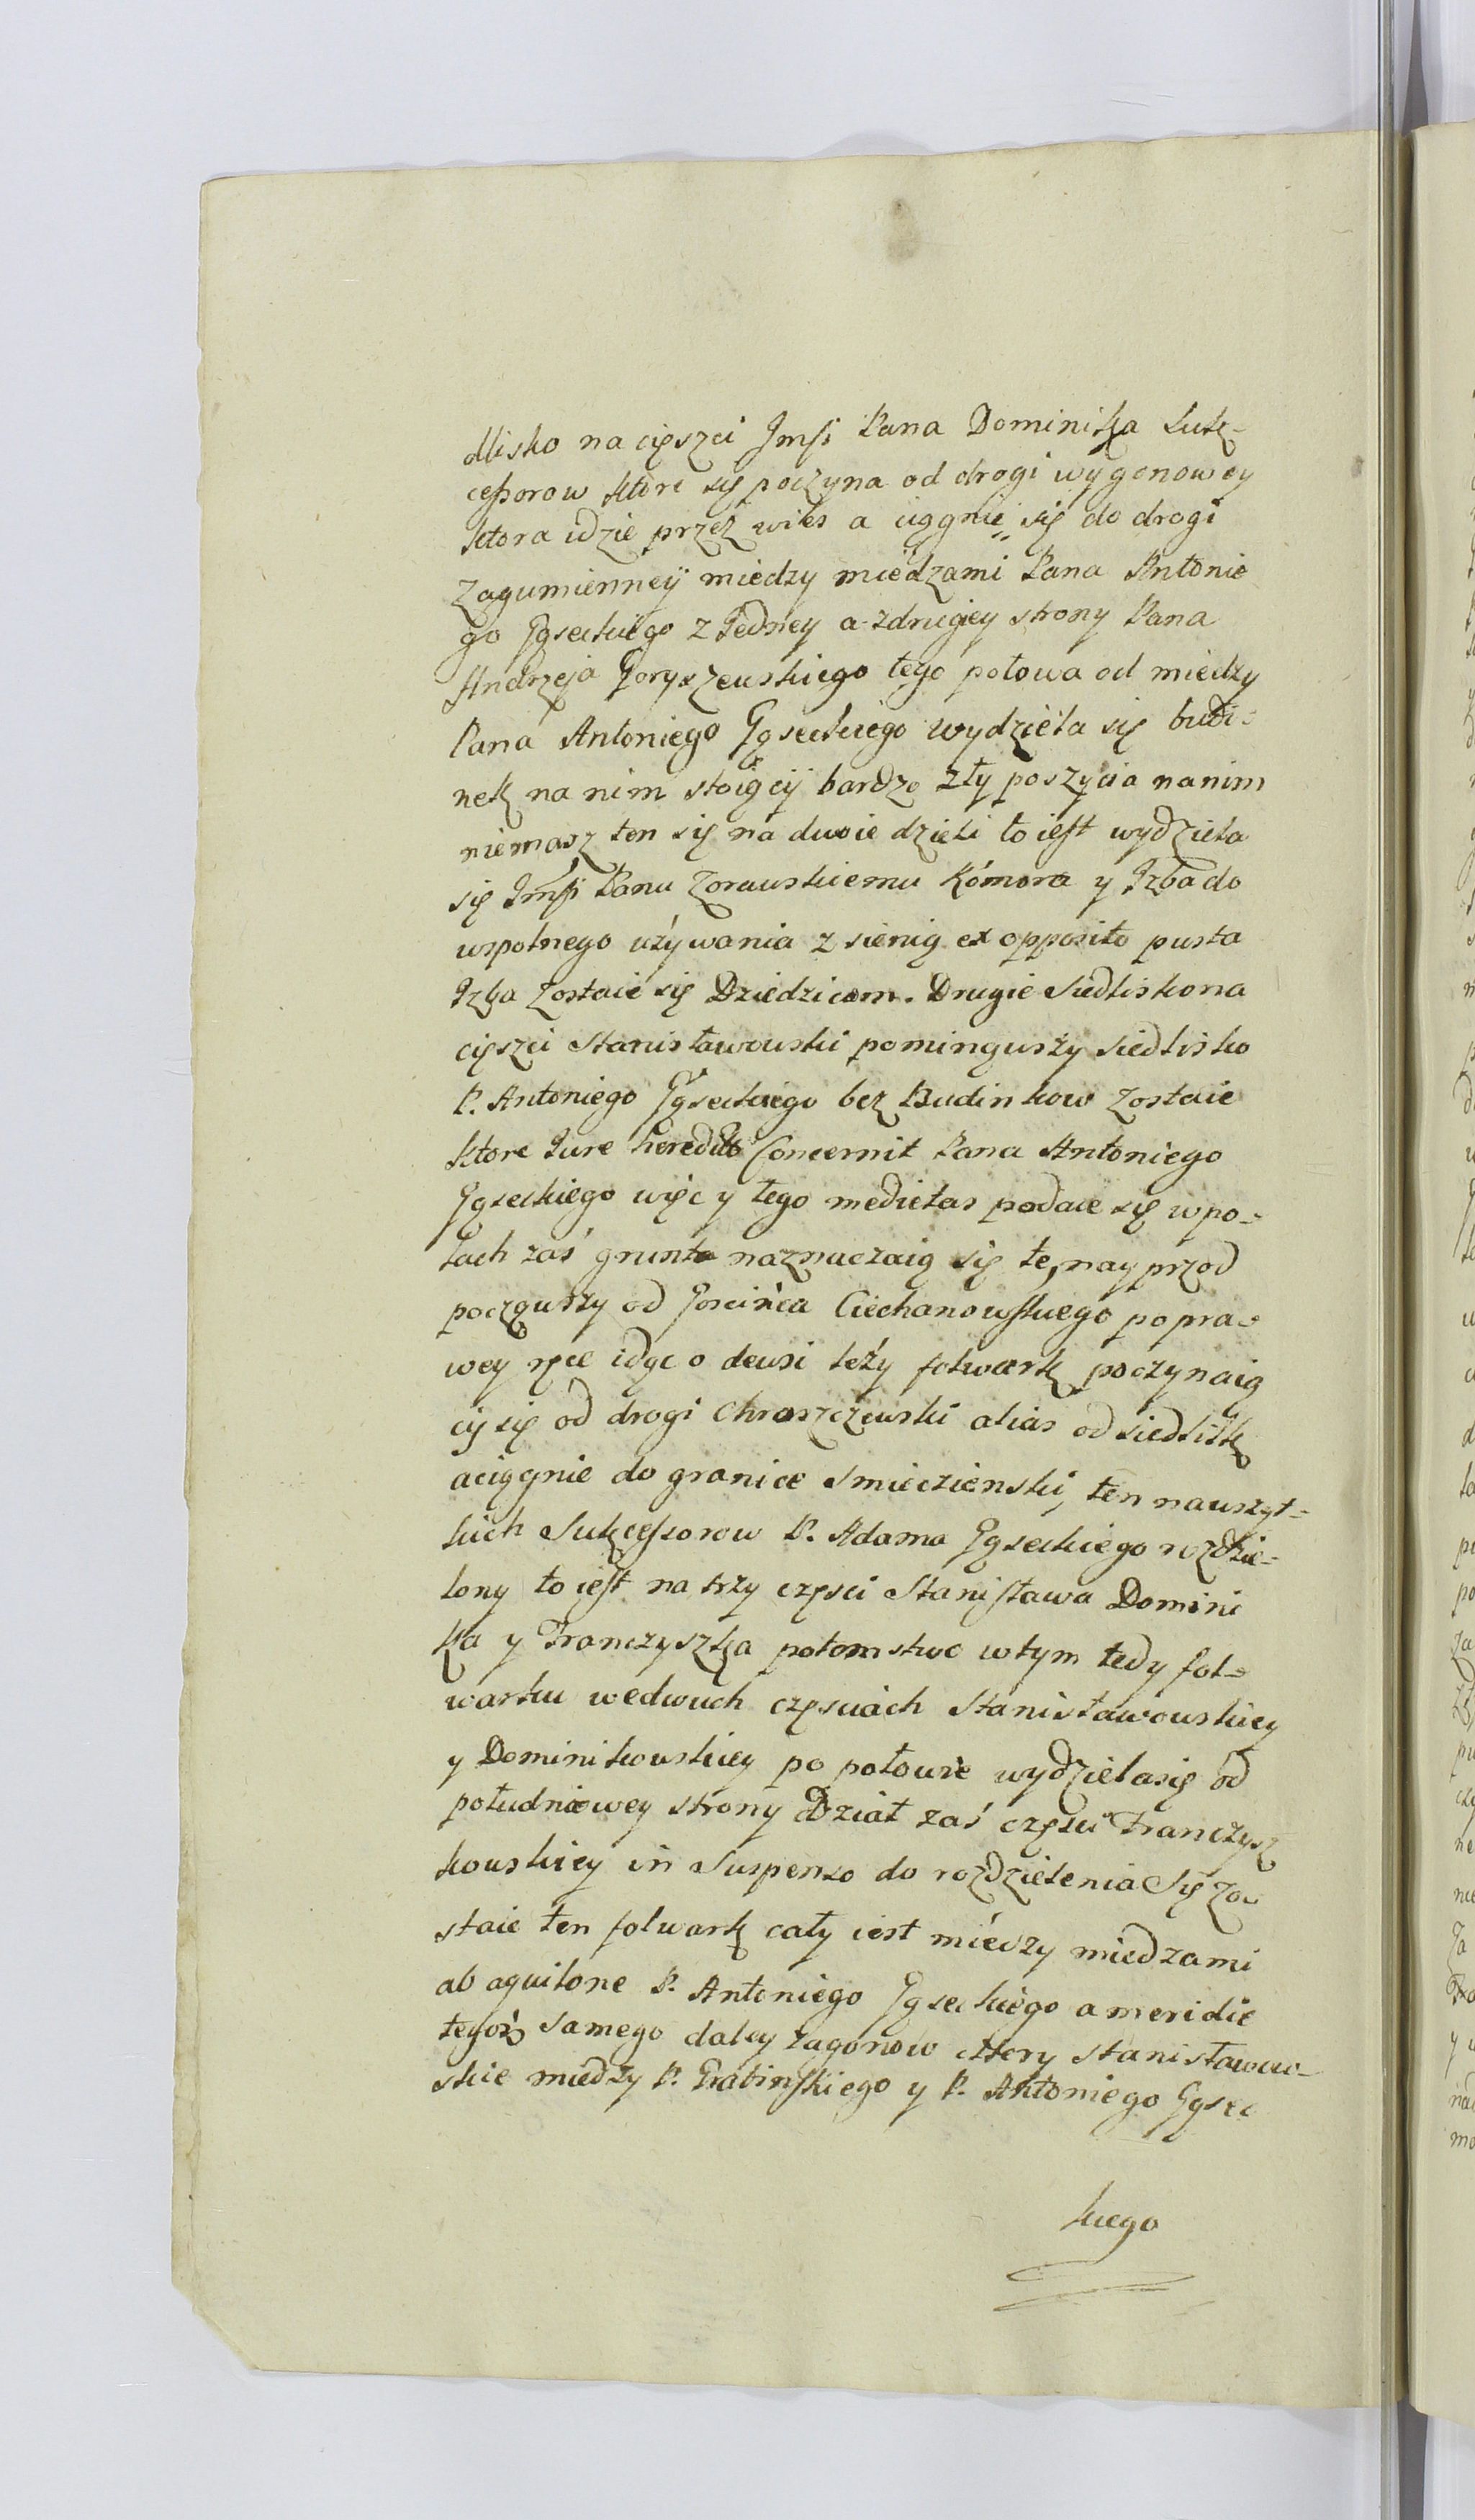 dlisko na cięszci Jmsi Pana Dominika Suk-
cessorow ktore się poczyna od drogi wygonowey
ktora idzie przez wies a ciągnie się do drogi
Zagumienney miedzy miedzami Pana Antonie
go Gąseckiego z Jedney a zdrugiey strony Pana
Andrzeja Goryszewskiego tego połowa od miedzy
Pana Antoniego Gąseckiego wydziela się budi-
nek na nim stoiący bardzo zły poszycia nanim
niemasz ten się na dwoie dzieli to iest wydziela
się Jmsi Panu Zorawskiemu Kómora y Izba do
wspolnego używania z sienią ex opposito pusta
Izba Zostaie się Dziedzicom. Drugie Siedlisko na
cięszci Stanisławowski pominąwszy siedlisko
P. Antoniego Gąseckiego bez Budinkow Zostaie
ktore Jure heredito Concernit Pana Antoniego
Gąseckiego więc y tego medietas podaie się wpo-
lach zaś grunta naznaczaią się te, nayprzod
począwszy od Goscińca Ciechanowskiego po pra-
wey ręce idąc o dewsi leży folwark poczynaią
cy się od drogi Chroszczewski alias od siedlisk
aciągnie do granice Smiecienski, ten nawszyt-
kich Sukcessorow P. Adama Gąseckiego rozdzie-
lony to iest na trzy częsci Stanisława Domini
ka y Franczyszka potomstwo wtym tedy fol-
warku wedwuch częsciach Stanisławowskiey
y Dominikowskiey po połowie wydziela się od
południowey strony Dział zaś częsci Franczysz
kowskiey in Suspenso do rozdzielenia Się Zo-
staie ten folwark cały iest miedzy miedzami
ab aquilone P. Antoniego Gąseckiego a meridie
tegoż Samego daley zagonow cztery Stanisławow-
skie miedzy P. Grabinskiego y P. Antoniego Gąsec
kiego